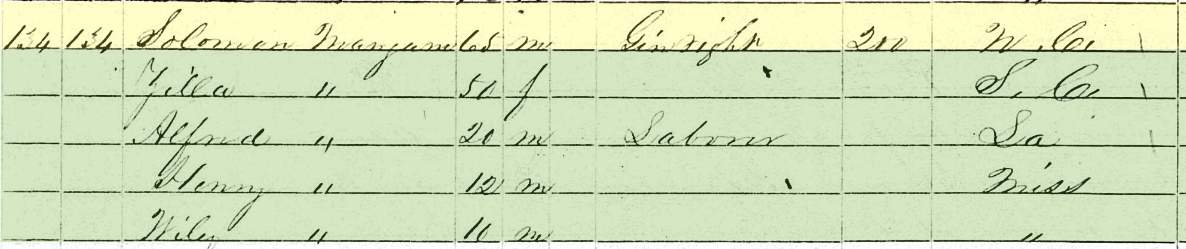 134 134 Solomon Mangum 65 m Ginright 200 N. Ca
Zilla " 50 f S. Ca
Alfred " 20 m Laborer La
Henry " 12 m Miss
Wiley " 10 m "